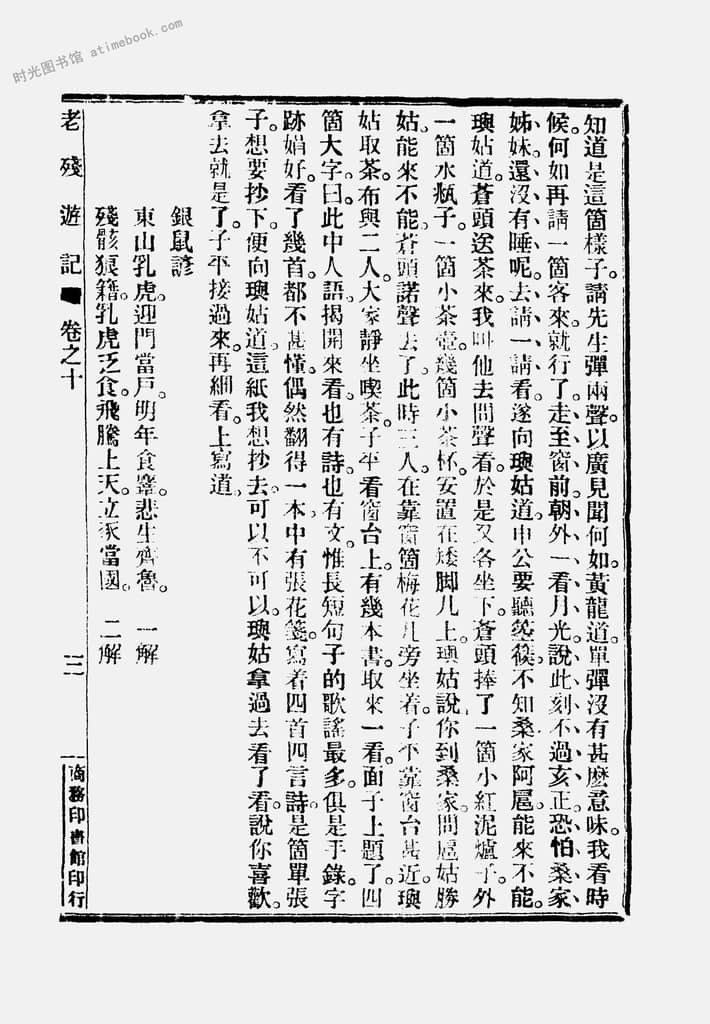 时光图书馆 atimebook.com
知道是這箇樣子。請先生彈兩聲。以廣見聞何如。黃龍道。單彈沒有甚麼意味。我看時
候何如。再請一箇客來。就行了。走至窗前。朝外一看。月光說。此刻不過亥正。恐怕桑家
姊妹還沒有睡呢。去請一請看。遂向璵姑道。申公要聽箜篌。不知桑家阿扈能來不能。
璵姑道。蒼頭送茶來。我叫他去問聲看。於是又各坐下。蒼頭捧了一箇小紅泥爐子。外
一箇水瓶子。一箇小茶壺。幾箇小茶杯。安置在矮脚几上。璵姑說。你到桑家。問扈姑勝
姑。能來不能。蒼頭諾聲去了。此時三人在靠窗箇梅花几旁坐着。子平靠窗台甚近。璵
姑取茶。布與二人。大家靜坐喫茶。子平看窗台上。有幾本書。取來一看。面子上題了四
箇大字。曰。此中人語。揭開來看。也有詩。也有文。惟長短句子的歌謠最多。俱是手錄。字
跡娟好。看了幾首。都不甚懂。偶然翻得一本。中有張花箋。寫着四首四言詩。是箇單張
子。想要抄下。便向璵姑道。這紙我想抄去。可以不可以。璵姑拿過去看了看。說你喜歡。
拿去就是了。子平接過來。再細看。上寫道。
銀鼠諺
東山乳虎。迎門當戶。明年食麞。悲生齊魯。 一解
殘骸狼籍。乳虎乏食。飛騰上天。立豕當國。 二解
老殘遊記 卷之十
三
商務印書館印行